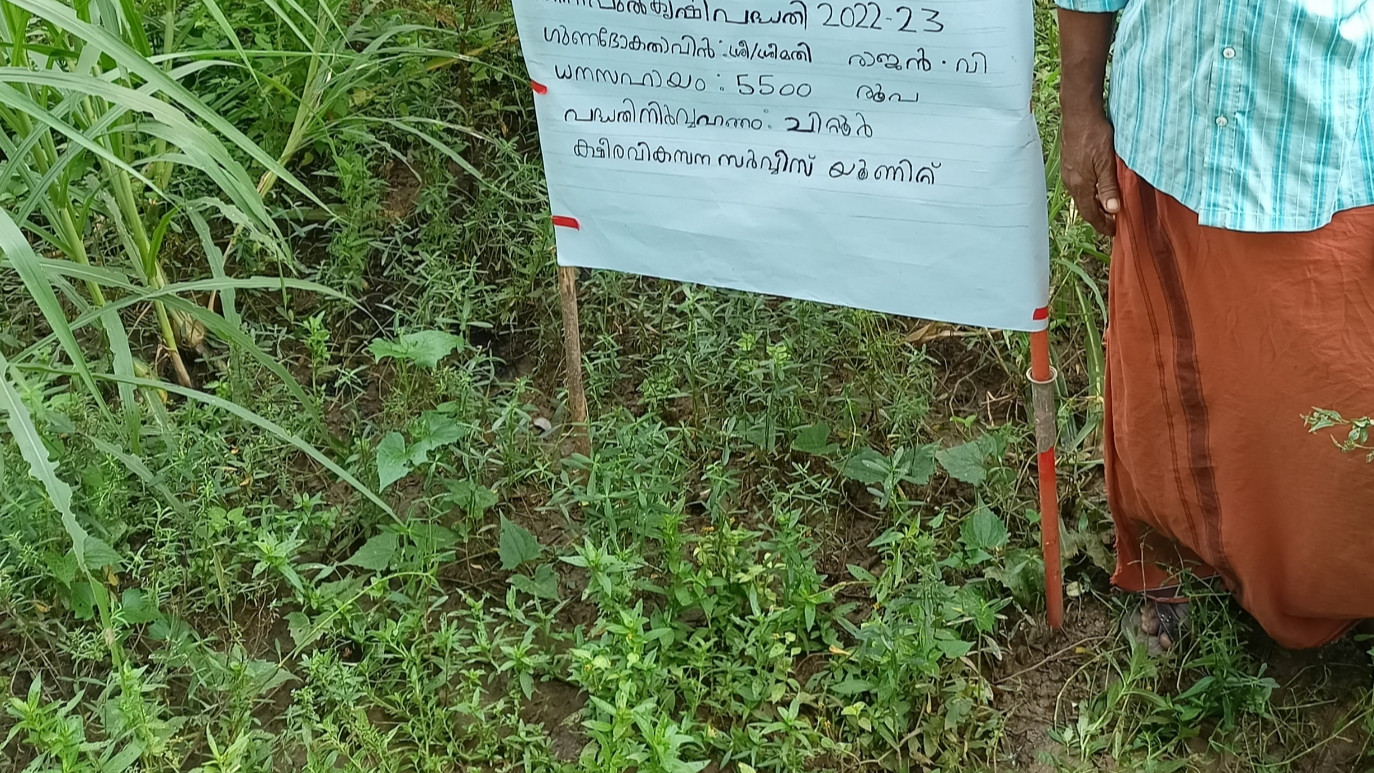 കൃഷി പദ്ധതി 2022-23
ഗുണഭോക്താവിൻ : ശ്രീ/ശ്രീമതി രാജൻ . വി
ധനസഹായം : 5500 രൂപ
പദ്ധതിനിർവ്വഹണം : ചിറ്റൂർ
ക്ഷീരവികസന സർവ്വീസ് യൂണിറ്റ്